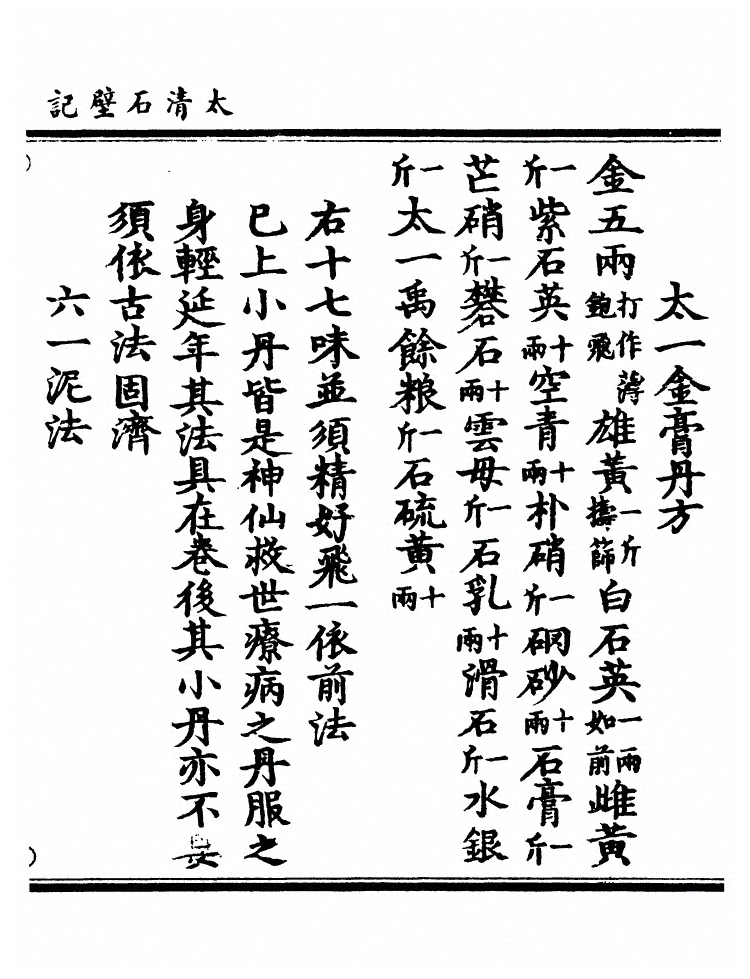 太清石壁記
太一金膏丹方
金五兩打作薄鉋飛雄黃一斤擣篩白石英一兩如前雌黃
一斤紫石英十兩空青十兩朴硝一斤硇砂十兩石膏一斤
芒硝一斤礬石十兩雲母一斤石乳十兩滑石一斤水銀
一斤太一禹餘粮一斤石硫黃十兩
右十七味並須精好飛一依前法
已上小丹皆是神仙救世療病之丹服之
身輕延年其法具在卷後其小丹亦不
須依古法固濟
六一泥法